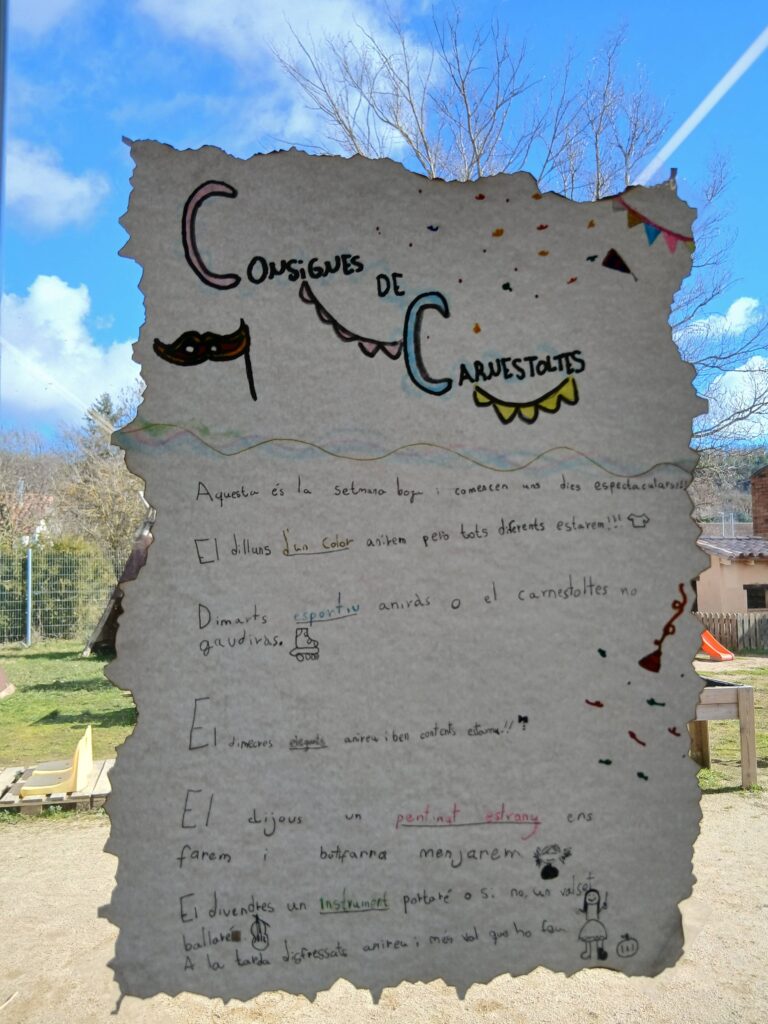 CONSIGNES DE
CARNESTOLTES
Aquesta és la setmana boja i comencen uns dies espectaculars!!!
El dilluns d'un color anirem pero tots diferents estarem!!!
Dimarts esportiu aniràs o el carnestoltes no
gaudiras.
El dimecres elegants anireu i ben contents estareu!!
El dijous un pentinat estrany ens
farem i botifarra menjarem
El divendres un instrument portaré o si no, un valset
ballaré.
A la tarda disfressats anireu i mes val que ho feu